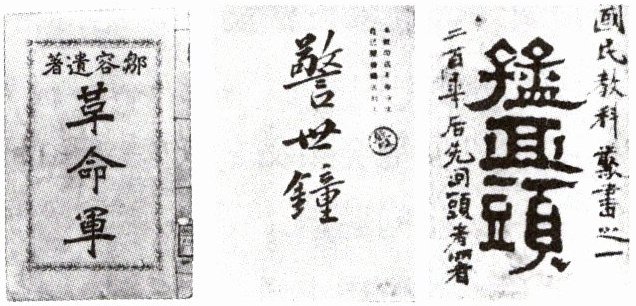 鄒容遺著
革命軍
警世鐘
國民教科叢書之一
猛回頭
二百年后先回頭者